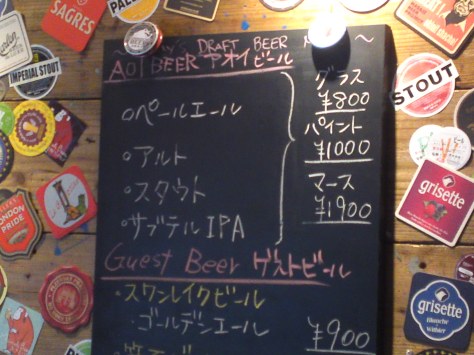 DRAFT BEER
AOI BEER アオイビール
グラス
¥800
パイント
¥1000
マース
¥1900
ペールエール
アルト
スタウト
サブテルIPA
Guest Beer ゲストビール
・スワンレイクビール
ゴールデンエール
¥900
SAGRES
IMPERIAL STOUT
LONDON
PRIDE
STOUT
grisette
grisette
Blanche